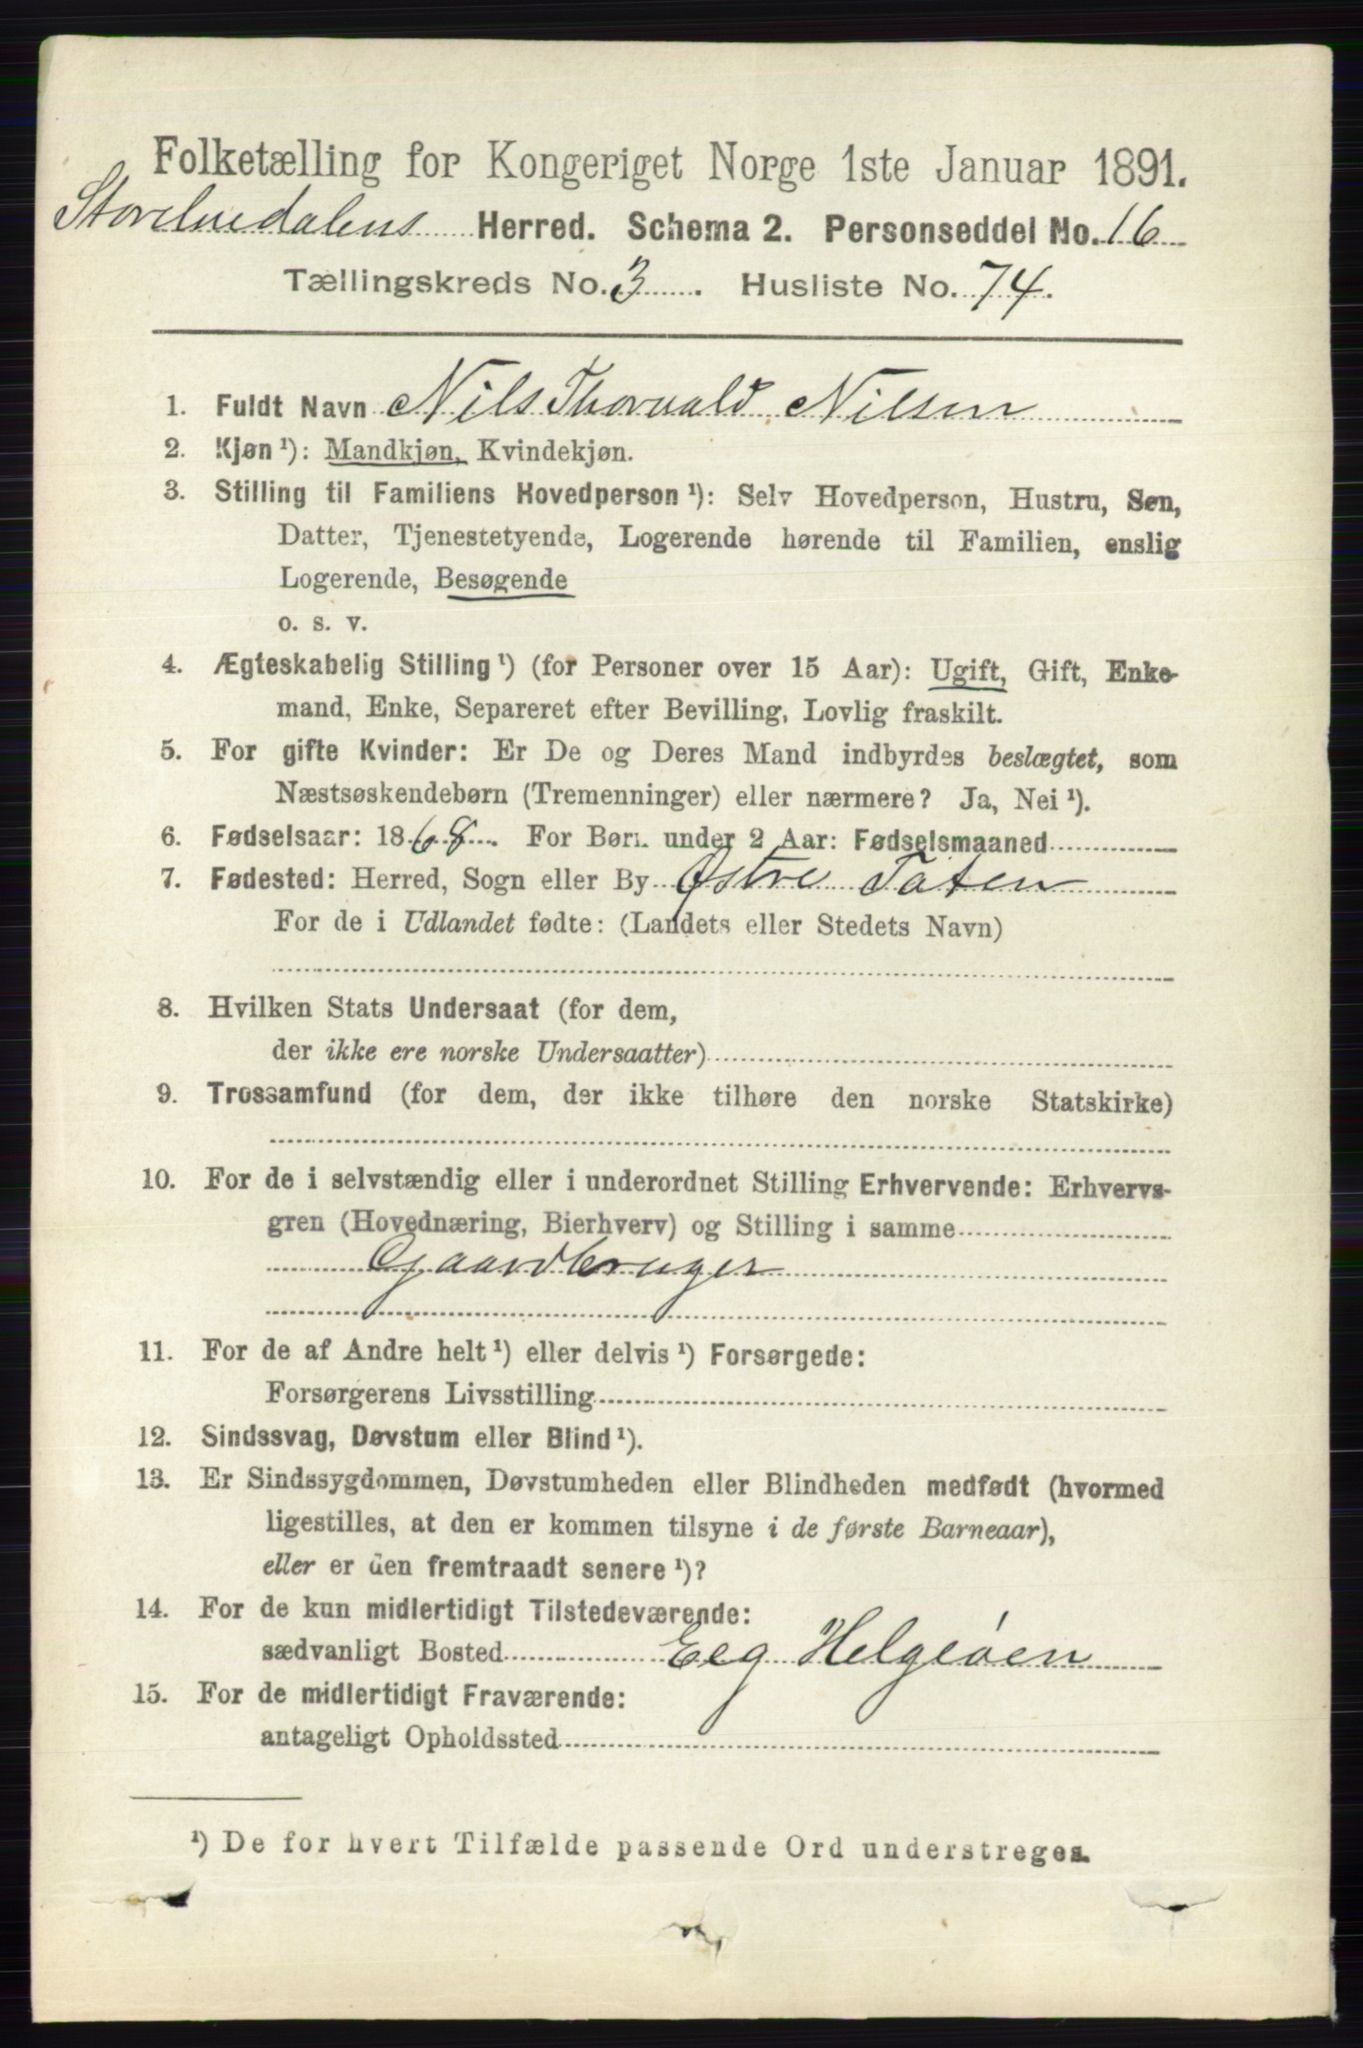 Folketælling for Kongeriget Norge 1ste Januar 1891.
Storelvedalens Herred. Schema 2. Personseddel No. 16
Tællingskreds No. 3. Husliste No. 74.
1. Fuldt Navn Nils Thorvald Nilsen
2. Kjøn¹): Mandkjøn, Kvindekjøn.
3. Stilling til Familiens Hovedperson¹): Selv Hovedperson, Hustru, Søn,
Datter, Tjenestetyende, Logerende hørende til Familien, enslig
Logerende, Besøgende
o. s. v.
4. Ægteskabelig Stilling¹) (for Personer over 15 Aar): Ugift, Gift, Enke-
mand, Enke, Separeret efter Bevilling, Lovlig fraskilt.
5. For gifte Kvinder: Er De og Deres Mand indbyrdes beslægtet, som
Næstsøskendebørn (Tremenninger) eller nærmere? Ja, Nei¹).
6. Fødselsaar: 1868. For Børn under 2 Aar: Fødselsmaaned
7. Fødested: Herred, Sogn eller By Østre Toten
For de i Udlandet fødte: (Landets eller Stedets Navn)
8. Hvilken Stats Undersaat (for dem,
der ikke ere norske Undersaatter)
9. Trossamfund (for dem, der ikke tilhøre den norske Statskirke)
10. For de i selvstændig eller i underordnet Stilling Erhvervende: Erhvervs-
gren (Hovednæring, Bierhverv) og Stilling i samme
Gaardbruger
11. For de af Andre helt¹) eller delvis¹) Forsørgede:
Forsørgerens Livsstilling
12. Sindssvag, Døvstum eller Blind¹).
13. Er Sindssygdommen, Døvstumheden eller Blindheden medfødt (hvormed
ligestilles, at den er kommen tilsyne i de første Barneaar),
eller er den fremtraadt senere¹)?
14. For de kun midlertidigt Tilstedeværende:
sædvanligt Bosted Eeg Helgeøen
15. For de midlertidigt Fraværende:
antageligt Opholdssted
¹) De for hvert Tilfælde passende Ord understreges.